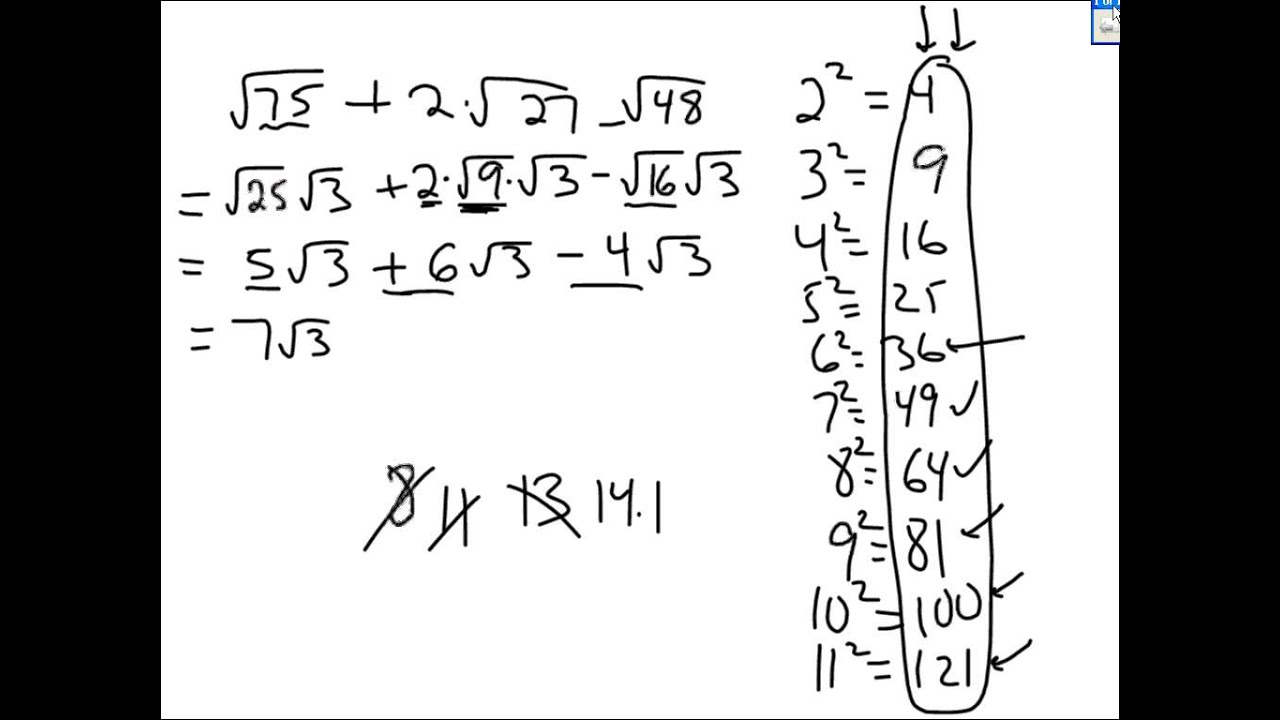 √75 + 2·√27 - √48
= √25 √3 + 2·√9·√3 - √16 √3
= 5√3 + 6√3 - 4√3
= 7√3
8 11 13 14.1
2² = 4
3² = 9
4² = 16
5² = 25
6² = 36
7² = 49
8² = 64
9² = 81
10² = 100
11² = 121